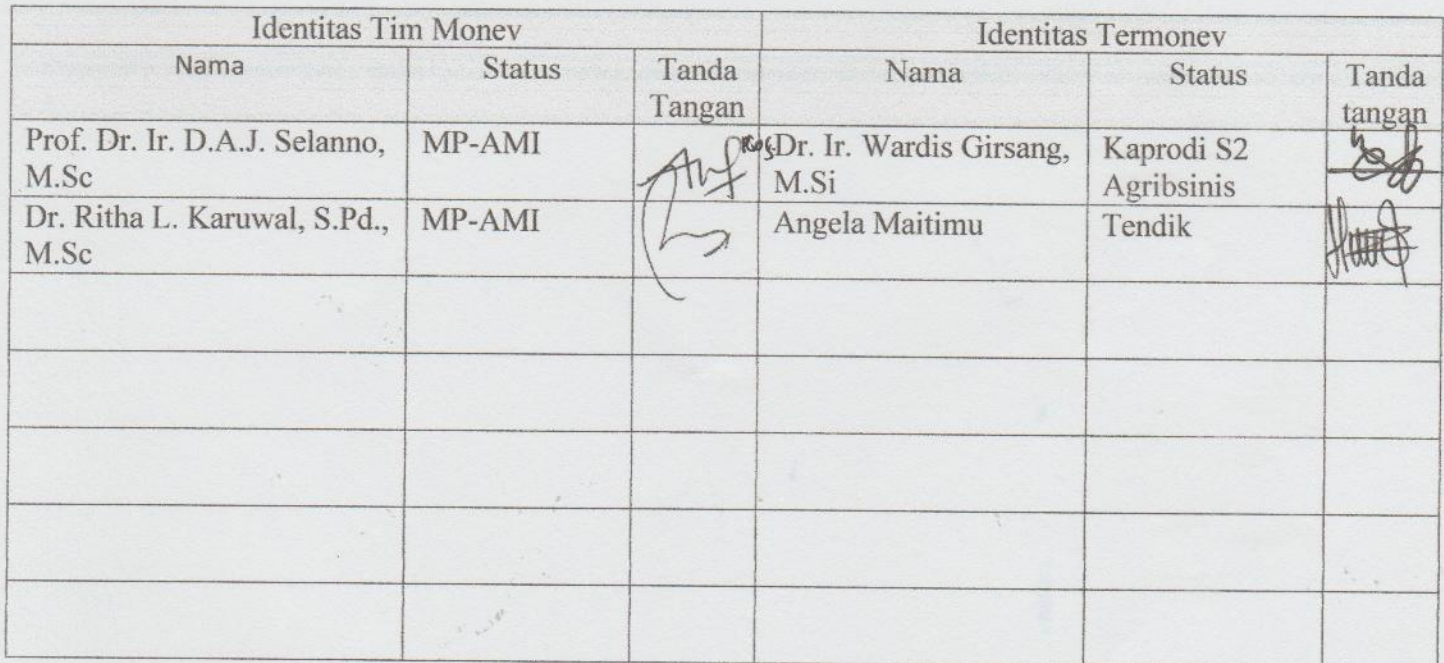 Identitas Tim Monev Identitas Termonev
Nama Status Tanda Tangan Nama Status Tanda tangan
Prof. Dr. Ir. D.A.J. Selanno, MP-AMI Dr. Ir. Wardis Girsang, Kaprodi S2
M.Sc M.Si Agribsinis
Dr. Ritha L. Karuwal, S.Pd., MP-AMI Angela Maitimu Tendik
M.Sc